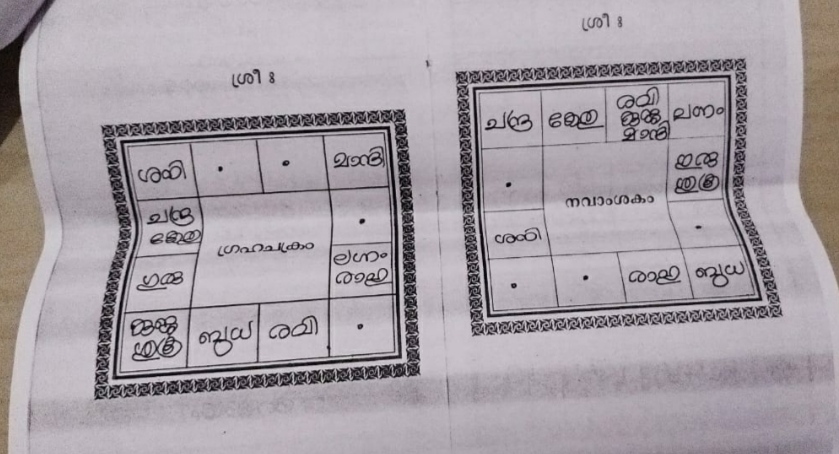 ശ്രീഃ
ശനി
മാന്ദി
ചന്ദ്ര
കേതു
ഗ്രഹചക്രം
ഗുരു
ലഗ്നം
രാഹു
കുജ
ശുക്ര
ബുധ
രവി
ശ്രീഃ
ചന്ദ്ര
കേതു
രവി
കുജ
മാന്ദി
ലഗ്നം
ഗുരു
ശുക്ര
നവാംശകം
ശനി
രാഹു
ബുധ